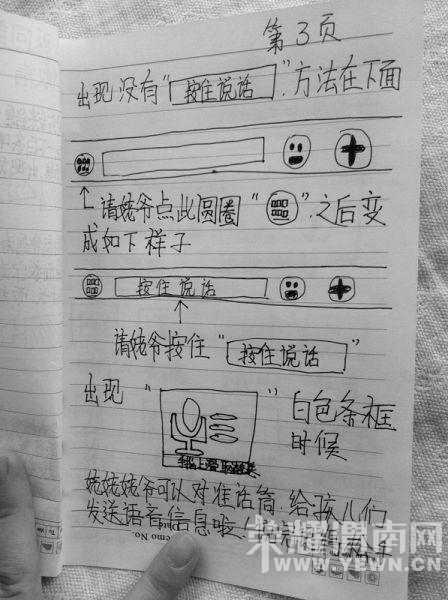 第3页
出现没有“按住说话”.方法在下面
请姥爷点此圆圈“ ”.之后变
成如下样子
按住说话
请姥爷按住“按住说话”
出现“ ”白色条框
时候
手指上滑取消发送
姥姥姥爷可以对准话筒.给孩儿们
发送语音信息啦！
emo No.
荣耀渭南网
WWW.YEWN.CN